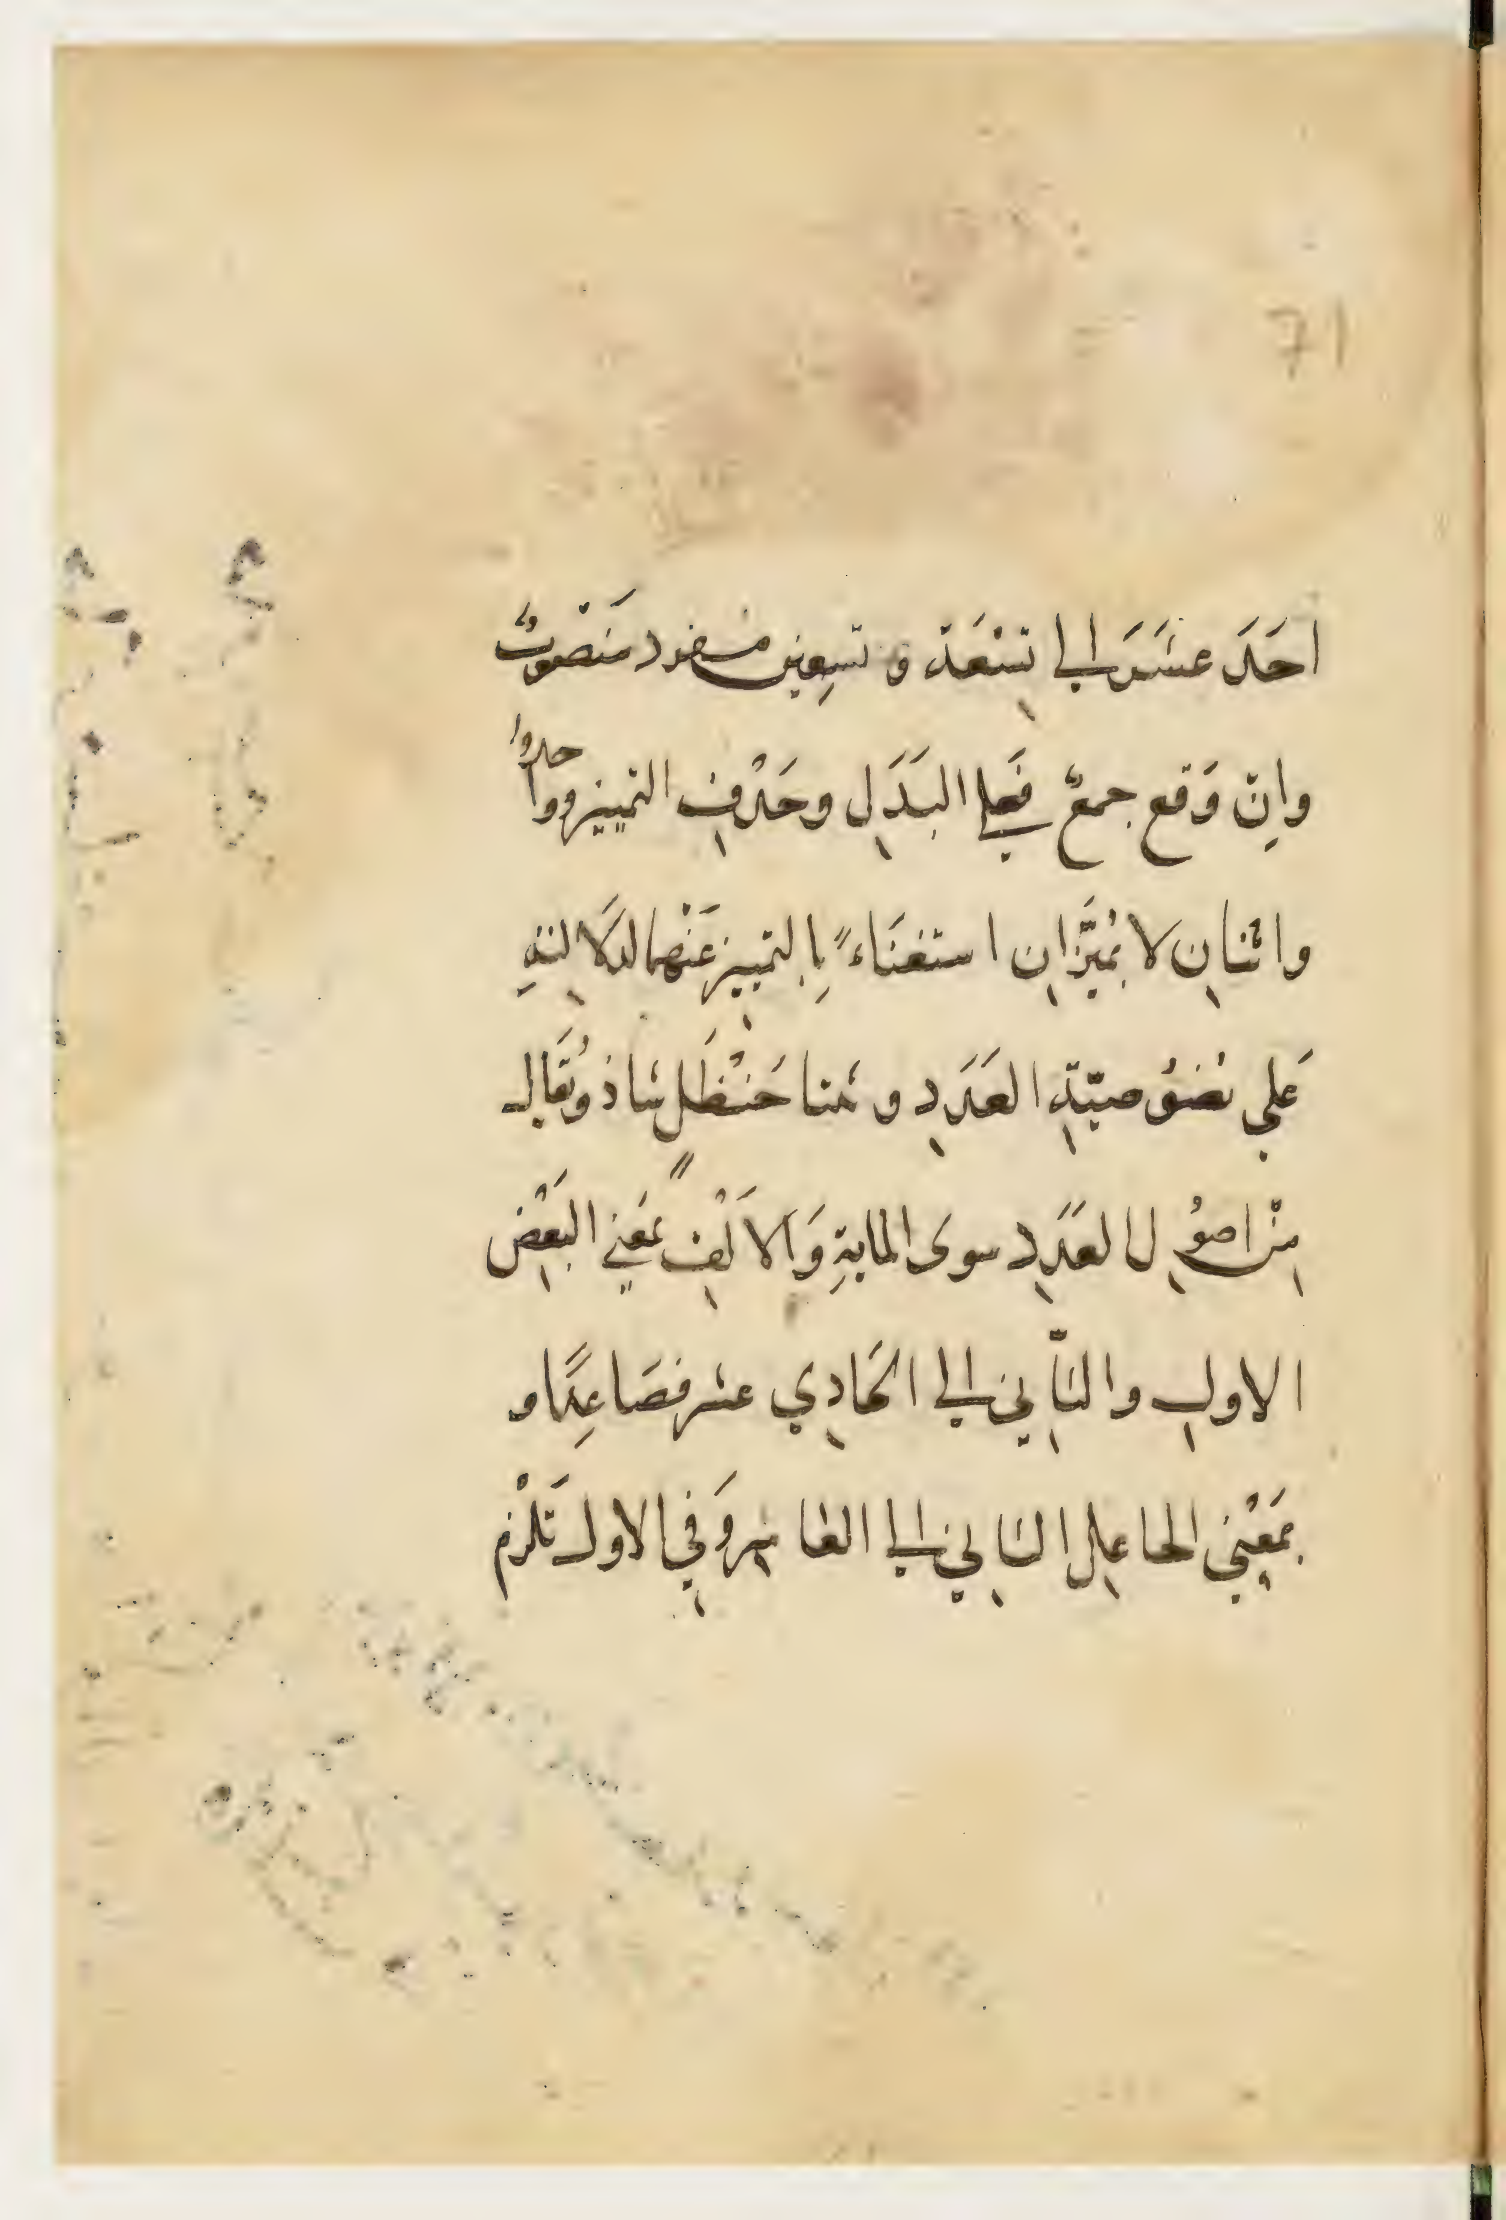 71
احَدَ عشَرَ الي تِسْعَة و تسعِين مفرد مَنصُوبٌ
وانّ وَقع جمعٌ فَعلي البَدَلِ وحَذْفِ التمييز وواحد
واثنانِ لا يُميَّزانِ استغنَاءً بِالتمييزِ عَنْهما لدَلالتِه
عَلي نصُوصيّةِ العَدَدِ و ثنتا حَنْظَلٍ شاذ ويُقَال
مِنْ اصُولِ العَدَدِ سوى المايةِ وَالالْفِ بمَعْني البَعْضِ
الاولِ والثّاني الي الحَادِي عشر فصَاعِدًا و
بمَعْني الجاعِلِ الثاني الي العاشِر وَفي الاول تَلْزم